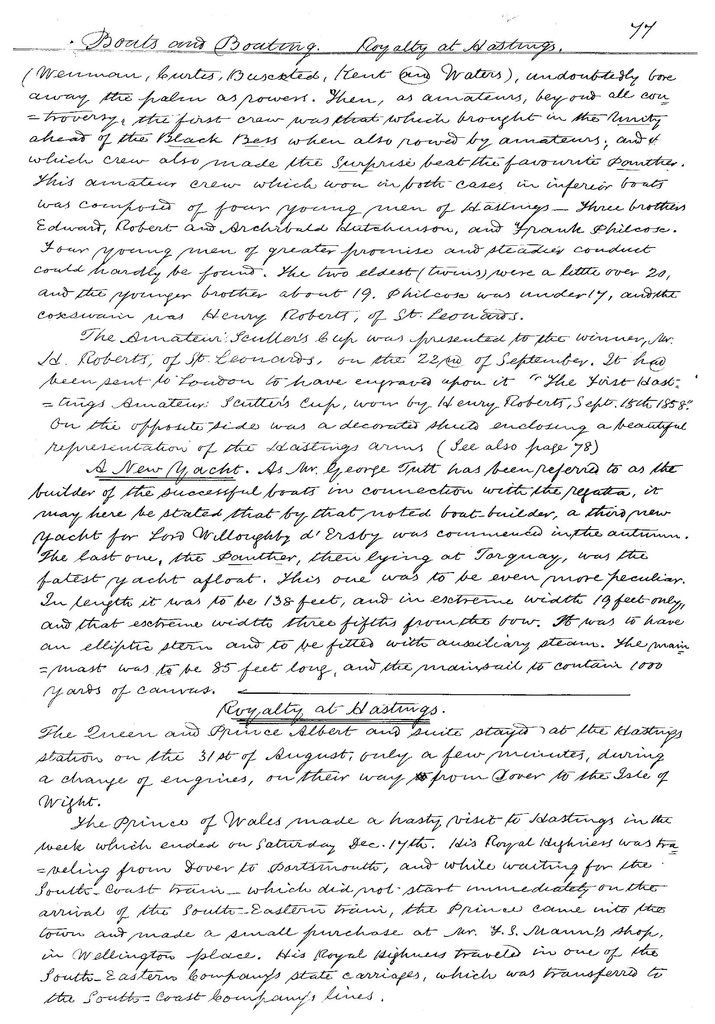 77
Boats and Boating. Royalty at Hastings.
(Wenman, Curtis, Buscsted, Kent and Waters), undoubtedly bore
away the palm as rowers. Then, as amateurs, beyond all con=
=troversy, the first crew was that which brought in the Unity
ahead of the Black Bess when also rowed by amateurs; and
which crew also made the Surprise beat the favourite Panther.
This amateur crew which won in both cases in inferior boats
was composed of four young men of Hastings — Three brothers
Edward, Robert and Archibald Hutchinson, and Frank Philcox.
Four young men of greater promise and steadier conduct
could hardly be found. The two eldest (twins) were a little over 20,
and the younger brother about 19. Philcox was under 17, and the
coxswain was Henry Roberts, of St. Leonards.
The Amateur Sculler's Cup was presented to the winner, Mr.
H. Roberts, of St. Leonards, on the 22nd of September. It had
been sent to London to have engraved upon it "The First Hast-
=tings Amateur Sculler's Cup, won by Henry Roberts, Sept. 15th 1858".
On the opposite side was a decorated shield enclosing a beautiful
representation of the Hastings arms (See also page 78)
A New Yacht. As Mr. George Tutt has been referred to as the
builder of the successful boats in connection with the regatta, it
may here be stated that by that noted boat-builder, a third new
yacht for Lord Willoughby d'Ersby was commenced in the autumn.
The last one, the Panther, then lying at Torquay, was the
fastest yacht afloat. This one was to be even more peculiar.
In length it was to be 138 feet, and in extreme width 19 feet only,
and that extreme width three fifths from the bow. It was to have
an elliptic stern and to be fitted with auxiliary steam. The main
=mast was to be 85 feet long, and the mainsail to contain 1000
yards of canvas.
Royalty at Hastings.
The Queen and Prince Albert and suite stayed at the Hastings
station on the 31st of August, only a few minutes, during
a change of engines, on their way from Dover to the Isle of
Wight.
The Prince of Wales made a hasty visit to Hastings in the
week which ended on Saturday Dec. 17th. His Royal Highness was tra=
=veling from Dover to Portsmouth, and while waiting for the
South-Coast train — which did not start immediately on the
arrival of the South-Eastern train, the Prince came into the
town and made a small purchase at Mr. F.S. Mann's shop,
in Wellington place. His Royal Highness traveled in one of the
South-Eastern Company's state carriages, which was transferred to
the South-Coast Company's lines.